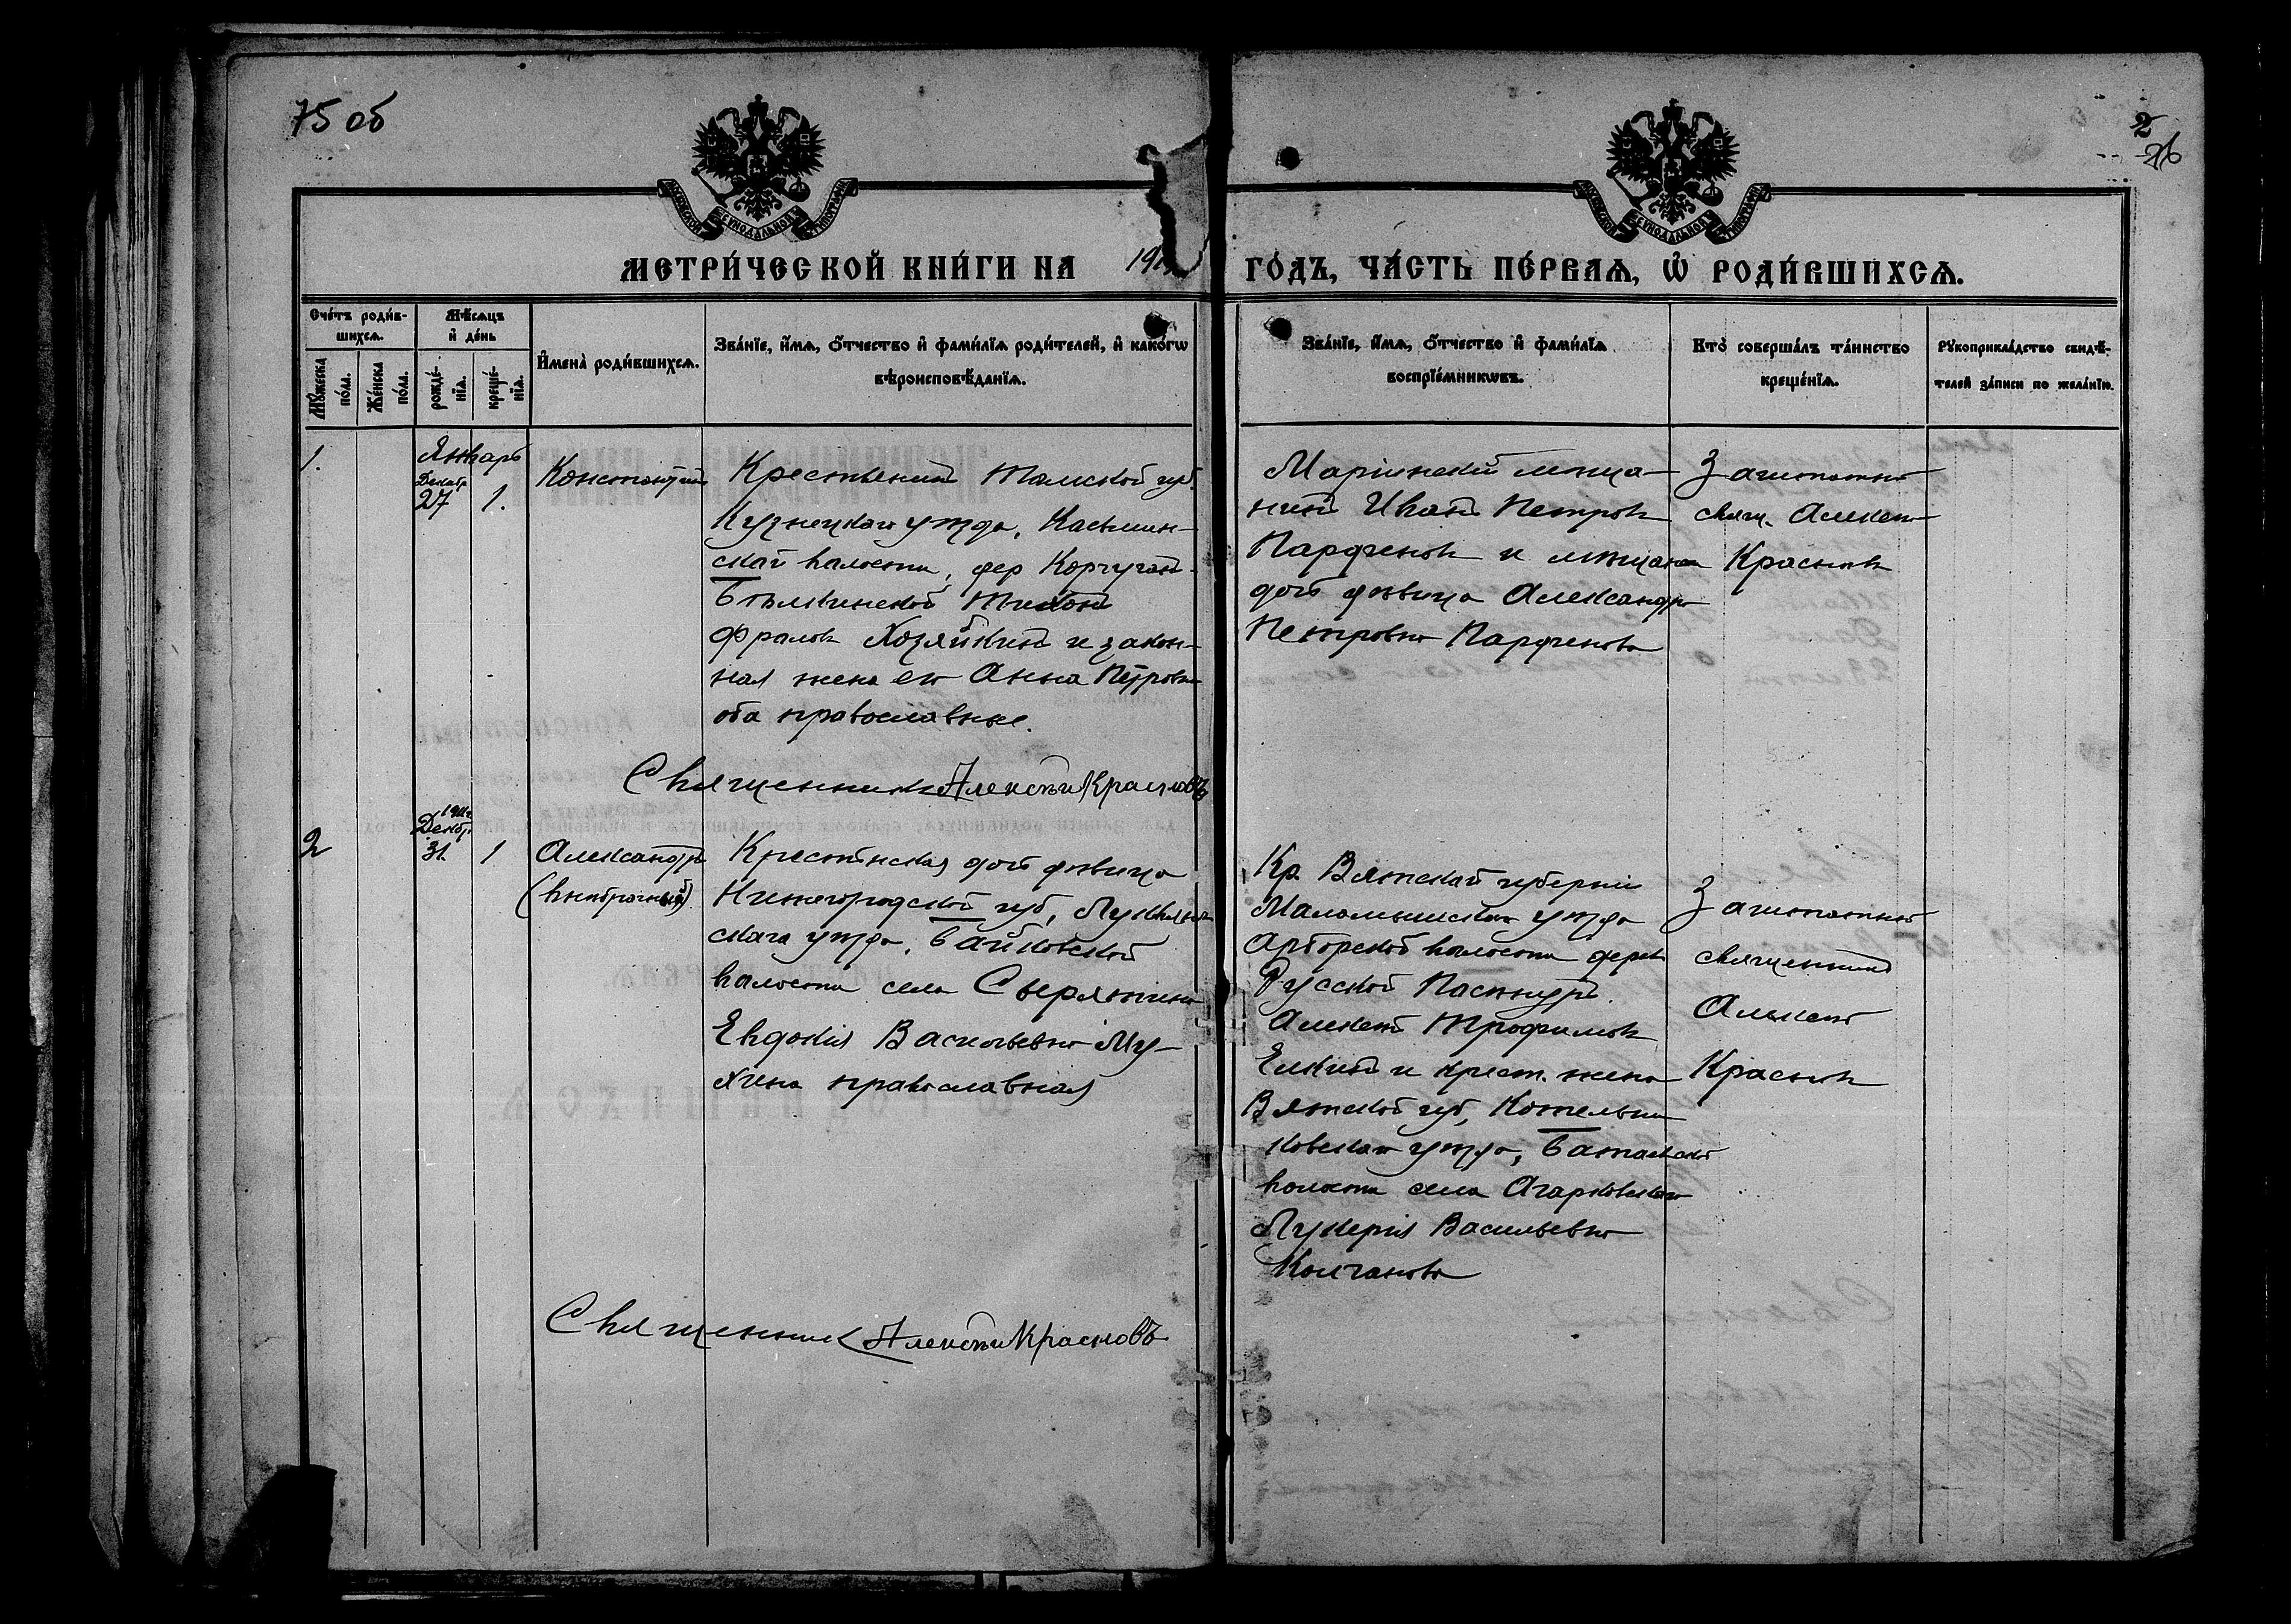 75 об
2
76
МЕТРИ́ЧЕСКОЙ КНИ́ГИ НА 191
ГО́ДЪ, ЧА́СТЬ ПЕ́РВАѦ, Ѡ҆ РОДИ́ВШИХСѦ.
Сче́тъ роди́в-
шихсѧ.
Мꙋ́жеска по́ла.
Же́нска по́ла.
Мѣ́сѧцъ
и҆ де́нь
рожде́-
нїѧ.
креще́-
нїѧ.
И҆мена̀ роди́вшихсѧ.
Зва́нїе, и҆́мѧ, ѻ҆́тчество и҆ фами́лїѧ роди́телей, и҆ како́гѡ
вѣроисповѣ́данїѧ.
Зва́нїе, и҆́мѧ, ѻ҆́тчество и҆ фами́лїѧ
воспрїе́мникѡвъ.
Кто̀ соверша́лъ та́инство
креще́нїѧ.
Рꙋкоприкла́дство свидѣ́-
телей за́писи по жела́нїю.
1.
Январь
Декабр
27
1.
Константинъ
Крестьянинъ Томской губ.
Кузнецкаго уѣзда, Касьмин-
ской волости, дер Корчуган-
Тихонъ
Фроловъ Хозяйкинъ и закон-
ная жена его Анна Петровна
оба православные.
Священникъ Алексѣй Красновъ
Маріинскій мѣща-
нинъ Иванъ Петровъ
Парфеновъ и мѣщанская
дочь дѣвица Александра
Петровна Парфенова
Заштатный
свящ. Алексѣй
Красновъ
2
1911 г
Декабр.
31.
1
Александръ
(внѣбрачный)
Крестьянская дочь дѣвица
Нижегородской губ, Лукоянов
скаго уѣзда, Байковской
волости села
Евдокія Васильевна Му-
хина православная
Священникъ Алексѣй Красновъ
Кр. Вятской губерніи
Малмыжскаго уѣзда
Арборской волости дерев
Русской
Алексѣй Трофимовъ
Елкинъ и крест. жена
Вятской губ, Котельни
ковскаго уѣзда,
волости села
Лукерія Васильевна
Колчанова
Заштатный
священникъ
Алексѣй
Красновъ